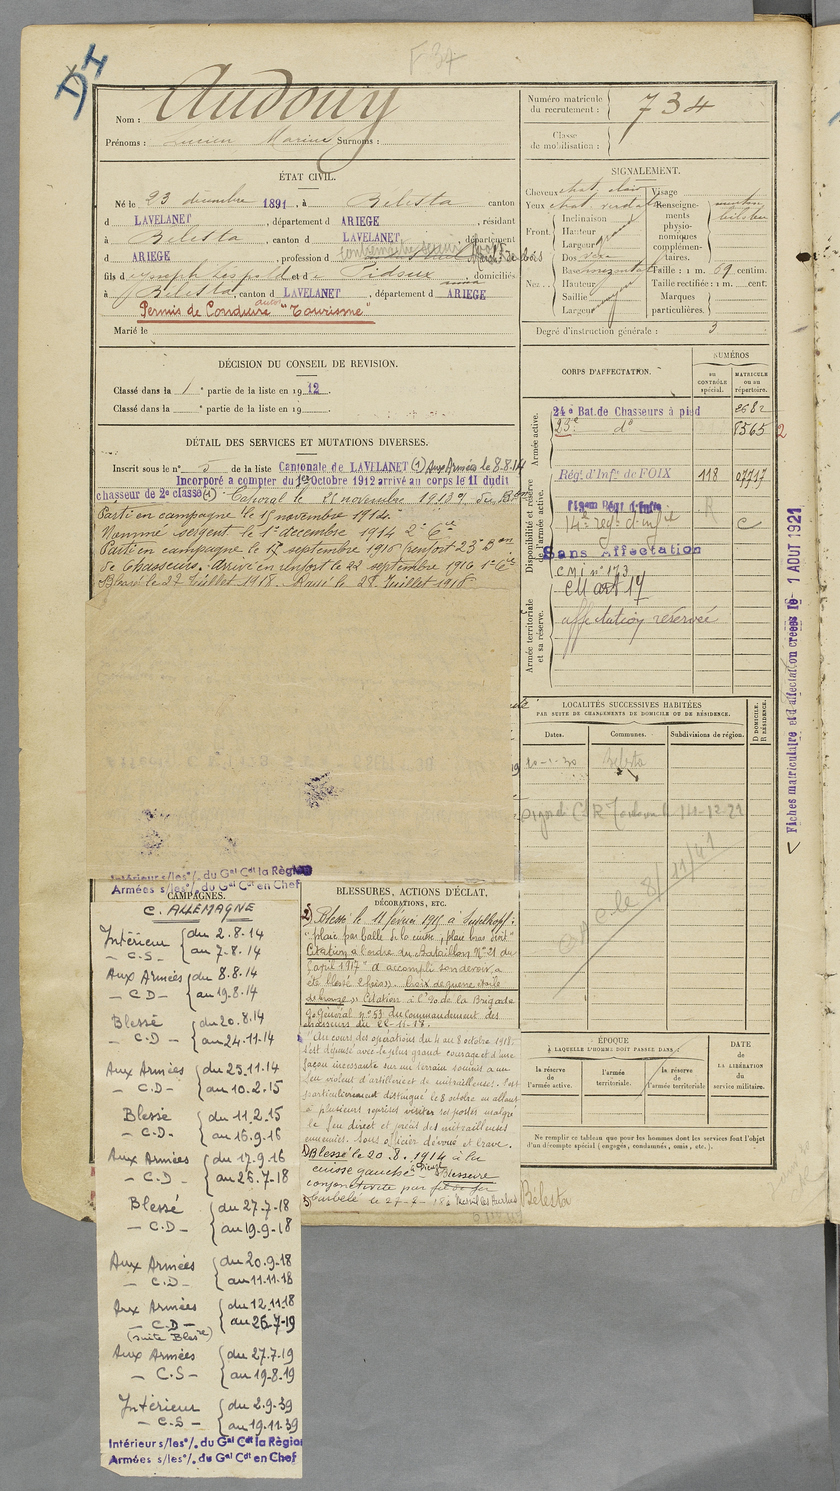 F 34
DI
Nom : Audouy
Prénoms : Lucien Marius Surnoms :
ÉTAT CIVIL.
Né le 23 décembre 1891, à Bélesta canton
d LAVELANET, département d ARIEGE, résidant
à Bélesta, canton d LAVELANET, département
d ARIEGE, profession d
fils d Joseph Léopold et d Pidoux, domiciliés
à Bélesta, canton d LAVELANET, département d ARIEGE
Permis de Conduire auto "Tourisme"
Marié le
DÉCISION DU CONSEIL DE REVISION.
Classé dans la 1e partie de la liste en 1912.
Classé dans la e partie de la liste en 19
DÉTAIL DES SERVICES ET MUTATIONS DIVERSES.
Inscrit sous le n° 5 de la liste Cantonale de LAVELANET (1) Aux Armées le 8.8.14
Incorporé à compter du 1er Octobre 1912 arrivé au corps le 11 dudit
chasseur de 2e classe (1) Caporal le 21 novembre 1913
Parti en campagne le 15 novembre 1914.
Nommé sergent le 1er décembre 1914 2e Cie
Parti en campagne le 17 septembre 1916 (renfort 23e Bon
de Chasseurs. Arrivé en renfort le 22 septembre 1916 1e Cie
Blessé le 27 Juillet 1918. Rayé le 28 Juillet 1918
Intérieur s/les °/. du Gal Cdt la Région
Armées s/les °/. du Gal Cdt en Chef
CAMPAGNES.
C. ALLEMAGNE
Intérieur du 2.8.14
- C.S - au 7.8.14
Aux Armées du 8.8.14
- C D - au 19.8.14
Blessé du 20.8.14
- C.D - au 24.11.14
Aux Armées du 25.11.14
- C.D - au 10.2.15
Blessé du 11.2.15
- C.D. au 16.9.16
Aux Armées du 17.9.16
- C.D - au 26.7.18
Blessé du 27.7.18
- C.D - au 19.9.18
Aux Armées du 20.9.18
- C.D - au 11.11.18
Aux Armées du 12.11.18
- C.D - au 26.7.19
(suite Blesre)
Aux Armées du 27.7.19
- C.S - au 19.8.19
Intérieur du 2.9.39
- C.S - au 19.11.39
Intérieur s/les °/. du Gal Cdt la Région
Armées s/les °/. du Gal Cdt en Chef
BLESSURES, ACTIONS D'ÉCLAT,
DÉCORATIONS, ETC.
2) Blessé le 11 février 1915 à Sudelkopf :
"plaie par balle de la cuisse, plaie bras droit"
Citation à l'ordre du Bataillon N° 21 du
avril 1917 "a accompli son devoir, a
été blessé 2 fois". Croix de guerre étoile
de bronze. Citation à l'O. de la Brigade
général n° 53 du Commandement des
chasseurs du 22-11-18.
"Au cours des opérations du 4 au 8 octobre 1918.
s'est dépensé avec le plus grand courage et d'une
façon incessante sur un terrain soumis à un
feu violent d'artillerie et de mitrailleuses. S'est
particulièrement distingué le 8 octobre en allant
à plusieurs reprises visiter ses postes malgré
le feu direct et précis des mitrailleuses
ennemies. Sous officier dévoué et brave.
1) Blessé le 20.8.1914 à la
cuisse gauche à Dieuze Blessure
conjonctivite par fil de fer
3) barbelé le 27-7-18 à Mesnil les Hurlus
Bélesta
Numéro matricule
du recrutement : 734
Classe
de mobilisation :
SIGNALEMENT.
Cheveux chat. clair Visage
Yeux chat. verdâtre
Renseigne-
ments
physio-
nomiques
complémen-
taires.
menton
Front. Inclinaison
Hauteur
Largeur
Nez Dos
Base horizontale Taille : 1 m. 69 centim.
Hauteur Taille rectifiée : 1 m. cent.
Saillie Marques
Largeur particulières.
Degré d'instruction générale : 3
CORPS D'AFFECTATION.
NUMÉROS
au
CONTRÔLE
spécial.
MATRICULE
ou au
répertoire.
Armée active.
24e Bat. de Chasseurs à pied 2682
23e do 8565 2
Disponibilité et réserve
de l'armée active.
Régt d'Infie de FOIX 118 07717
R
14e régt d'infie C
Sans Affectation
C M I n° 173
CM art 17
Armée territoriale
et sa réserve.
affectation réservée
Fiches matriculaire et d'affectation créées le 1 AOUT 1921
LOCALITÉS SUCCESSIVES HABITÉES
PAR SUITE DE CHANGEMENTS DE DOMICILE OU DE RÉSIDENCE.
Dates. Communes. Subdivisions de région. D DOMICILE. R RÉSIDENCE.
Bélesta
CR Toulouse
le 8/11/41
ÉPOQUE
À LAQUELLE L'HOMME DOIT PASSER DANS :
la réserve
de l'armée active.
l'armée
territoriale.
la réserve
de
l'armée territoriale
DATE
de
LA LIBÉRATION
du
service militaire.
Ne remplir ce tableau que pour les hommes dont les services font l'objet
d'un décompte spécial (engagés, condamnés, omis, etc.).